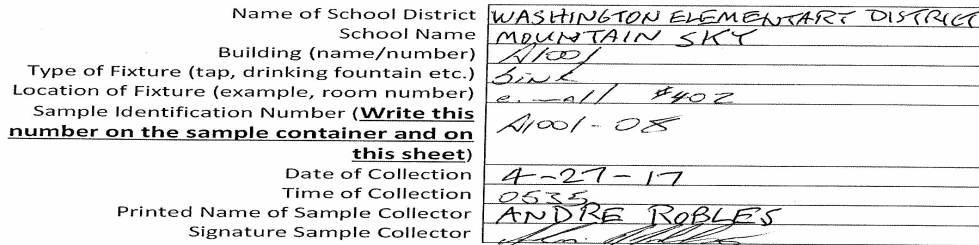 Name of School District WASHINGTON ELEMENTARY DISTRICT
School Name MOUNTAIN SKY
Building (name/number) A1001
Type of Fixture (tap, drinking fountain etc.) Sink
Location of Fixture (example, room number) e. wall #402
Sample Identification Number (Write this
number on the sample container and on A1001-08
this sheet)
Date of Collection 4-27-17
Time of Collection 0535
Printed Name of Sample Collector ANDRE ROBLES
Signature Sample Collector